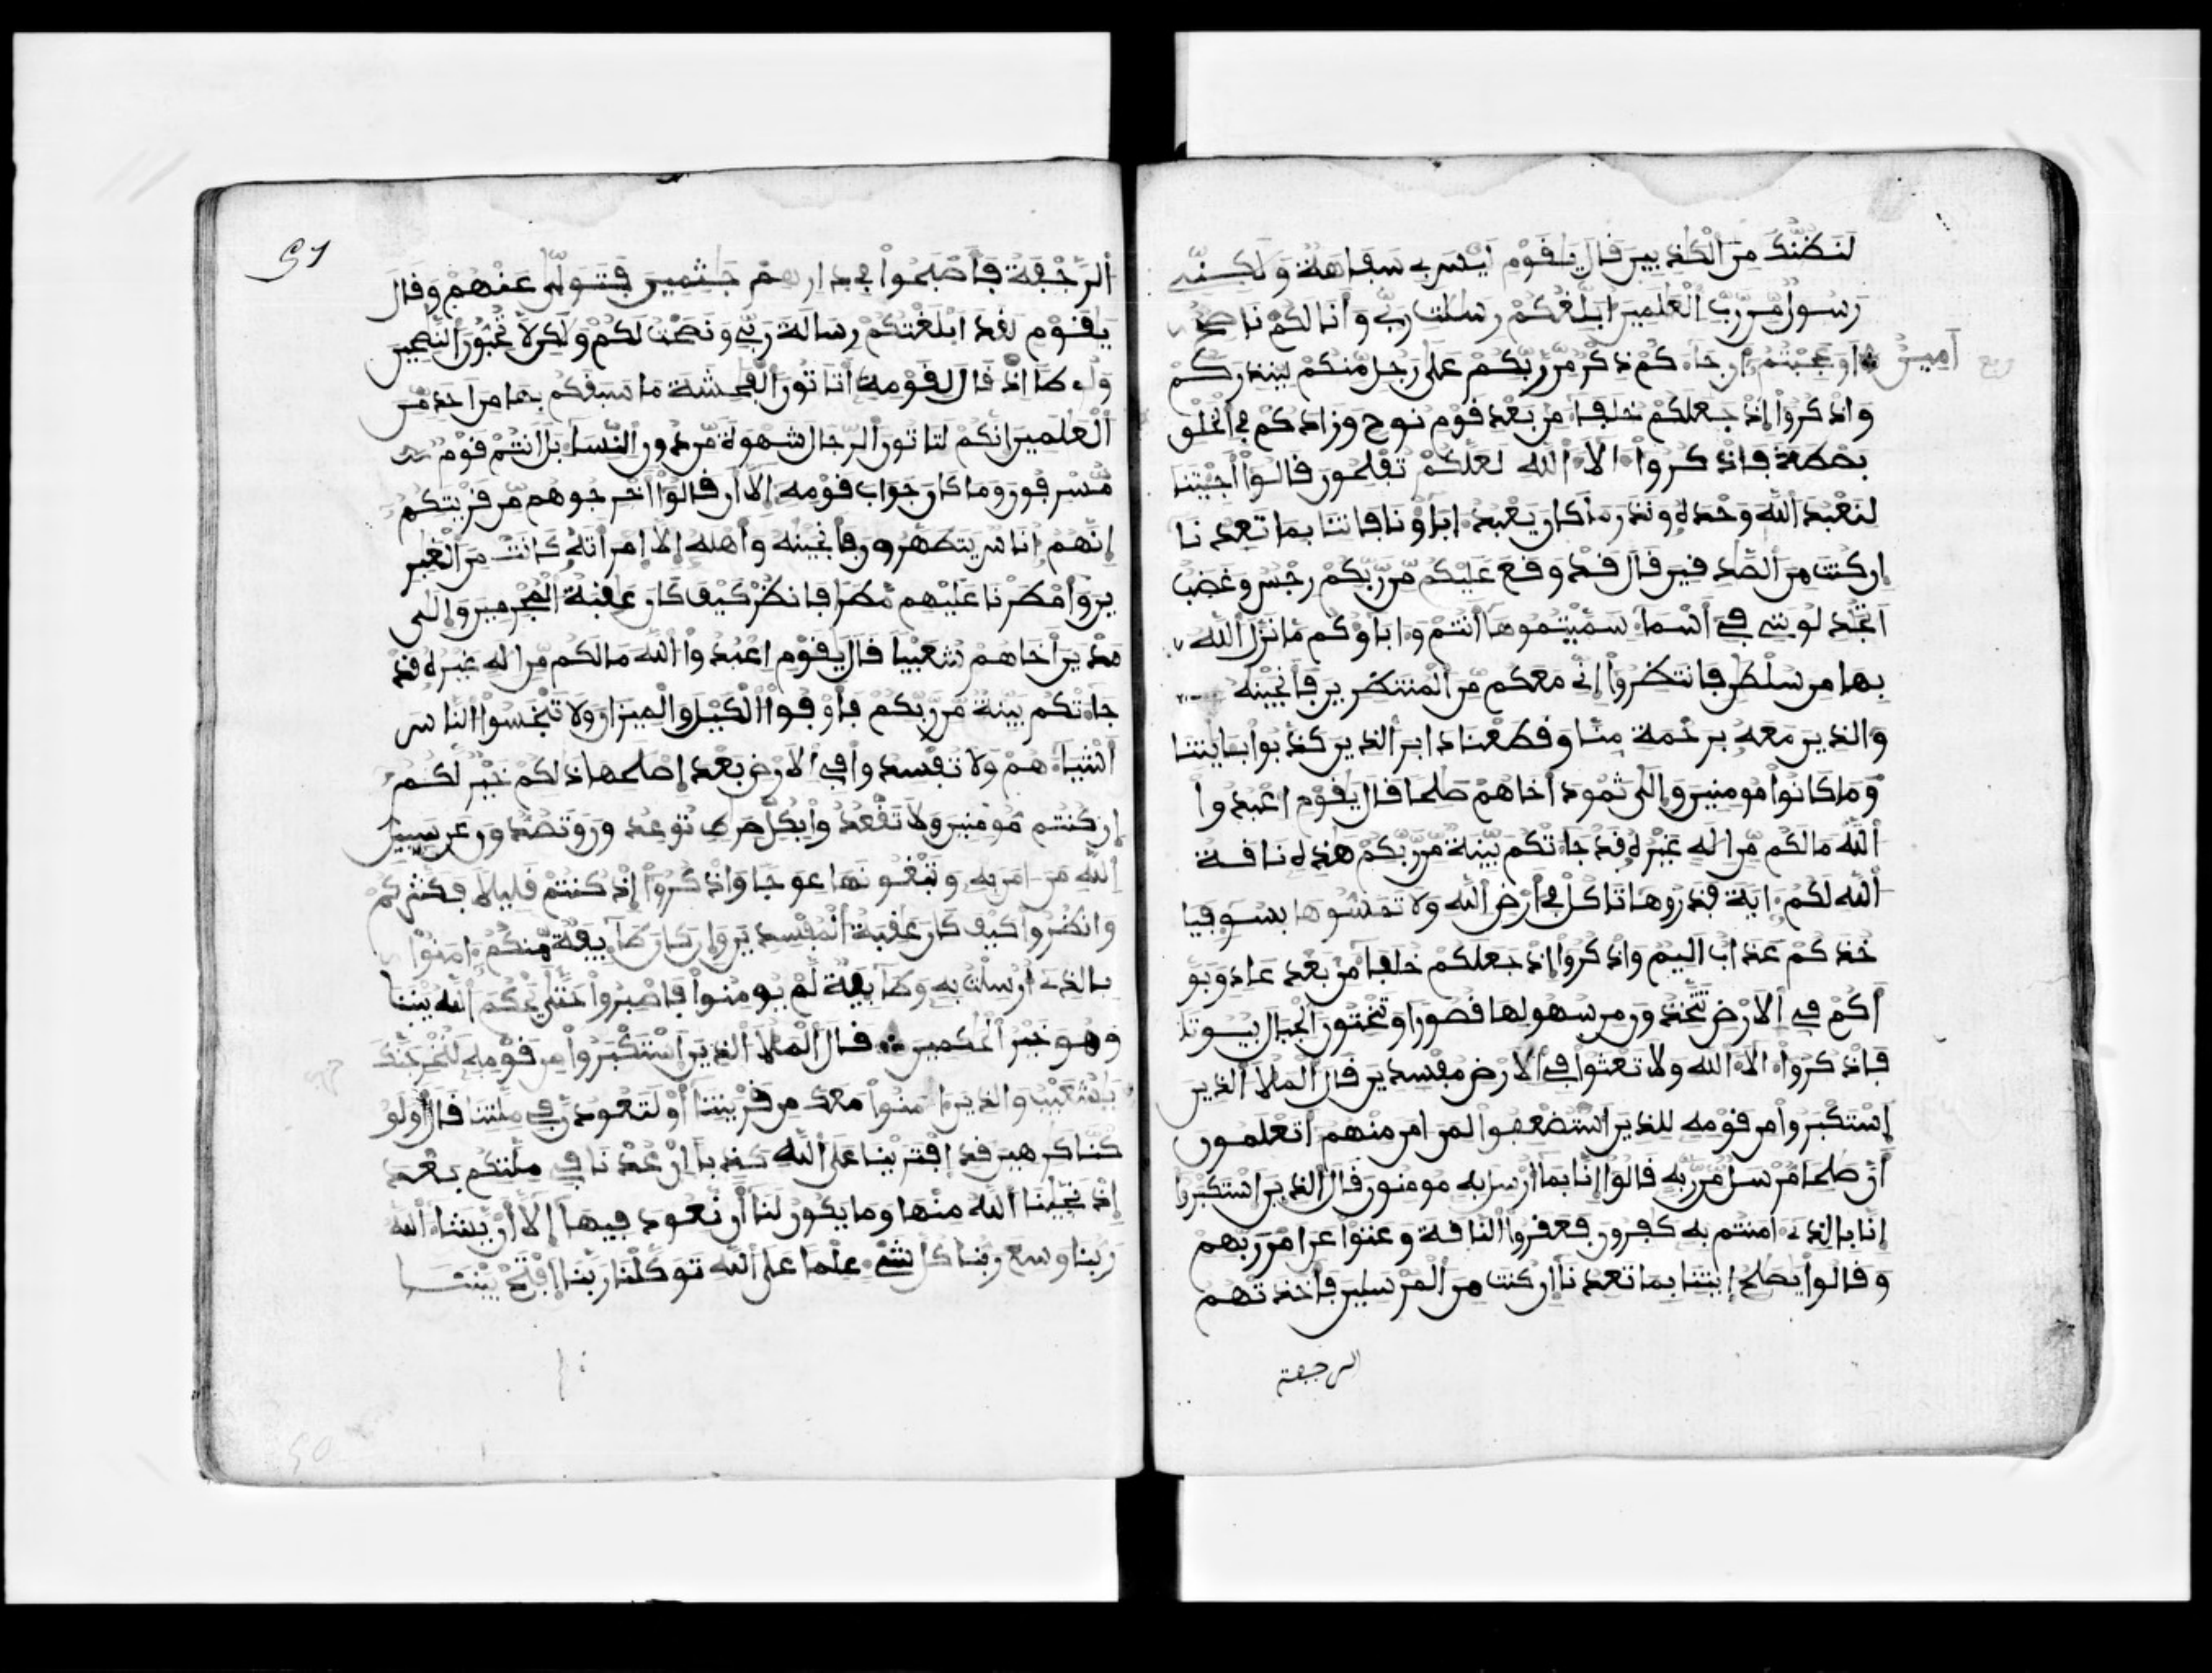 لنظنك من الكذبين قال يقوم ليس بي سفاهة ولكني
رسول من رب العلمين ابلغكم رسلت ربي وانا لكم ناصح
امين او عجبتم ان جاءكم ذكر من ربكم على رجل منكم لينذركم
ربع
واذكروا إذ جعلكم خلفاء من بعد قوم نوح وزادكم في الخلق
بصطة فاذكروا ءالاء الله لعلكم تفلحون قالوا أجئتنا
لنعبد الله وحده ونذر ما كان يعبد ءاباؤنا فاتنا بما تعدنا
ان كنت من الصدقين قال قد وقع عليكم من ربكم رجس وغضب
اتجدلونني في أسماء سميتموها أنتم وءاباؤكم ما نزل الله
بها من سلطن فانتظروا إني معكم من المنتظرين فأنجينه
والذين معه برحمة منا وقطعنا دابر الذين كذبوا بئايتنا
وما كانوا مومنين وإلى ثمود أخاهم صلحا قال يقوم اعبدوا
الله ما لكم من اله غيره قد جاءتكم بينة من ربكم هذه ناقة
الله لكم ءاية فذروها تاكل في أرض الله ولا تمسوها بسوء فيا
خذكم عذاب اليم واذكروا إذ جعلكم خلفاء من بعد عاد وبو
أكم في الارض تتخذون من سهولها قصورا وتنحتون الجبال بيوتا
فاذكروا ءالاء الله ولا تعثوا في الارض مفسدين قال الملا الذين
إستكبروا من قومه للذين استضعفوا لمن امن منهم أتعلمون
أن صلحا مرسل من ربه قالوا إنا بما أرسل به مومنون قال الذين استكبروا
إنا بالذي ءامنتم به كفرون فعقروا الناقة وعتوا عن امر ربهم
وقالوا يصلح إيتنا بما تعدنا إن كنت من المرسلين فأخذتهم
الرجفة
51
الرجفة فأصبحوا في دارهم جثمين فتولى عنهم وقال
يقوم لقد ابلغتكم رسالة ربي ونصحت لكم ولكن لا تحبون النصحين
ولوطا اذ قال لقومه أتاتون الفحشة ما سبقكم بها من احد من
العلمين إنكم لتاتون الرجال شهوة من دون النساء بل انتم قوم
مسرفون وما كان جواب قومه إلا أن قالوا أخرجوهم من قريتكم
إنهم أناس يتطهرون فأنجينه وأهله إلا امرأته كانت من الغبر
ين وأمطرنا عليهم مطرا فانظر كيف كان عقبة المجرمين وإلى
مدين أخاهم شعيبا قال يقوم اعبدوا الله ما لكم من اله غيره قد
جاءتكم بينة من ربكم فأوفوا الكيل والميزان ولا تبخسوا الناس
أشياءهم ولا تفسدوا في الارض بعد إصلحها ذلكم خير لكم
إن كنتم مومنين ولا تقعدوا بكل صرط توعدون وتصدون عن سبيل
الله من ءامن به وتبغونها عوجا واذكروا إذ كنتم قليلا فكثركم
وانظروا كيف كان عقبة المفسدين وإن كان طآيفة منكم ءامنوا
بالذي أرسلت به وطآيفة لم يومنوا فاصبروا حتى يحكم الله بيننا
وهو خير الحكمين قال الملا الذين استكبروا من قومه لنخرجنك
يشعيب والذين ءامنوا معك من قريتنا أو لتعودن في ملتنا قال أولو
كنا كرهين قد إفترينا على الله كذبا ان عدنا في ملتكم بعد
إذ نجينا الله منها وما يكون لنا أن نعود فيها إلا أن يشاء الله
ربنا وسع ربنا كل شيء علما على الله توكلنا ربنا إفتح بيننا
50